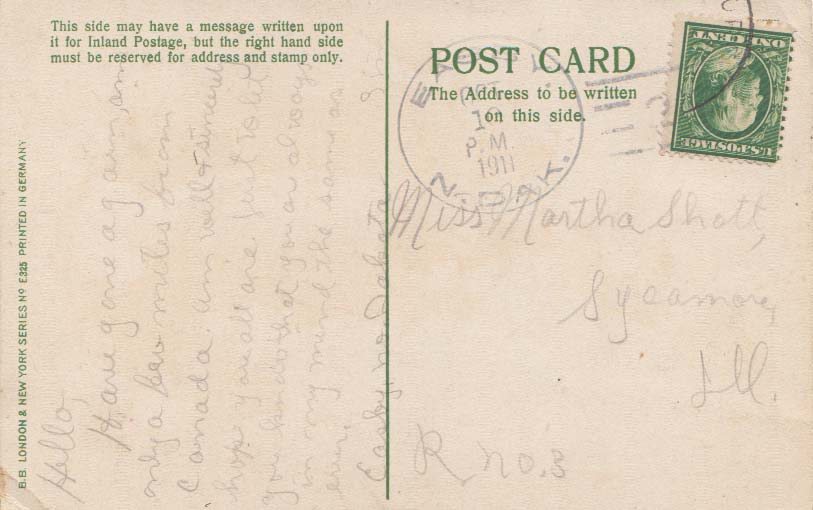 This side may have a message written upon
it for Inland Postage, but the right hand side
must be reserved for address and stamp only.
B.B. LONDON & NEW YORK SERIES Nº E325 PRINTED IN GERMANY
Hello,
Have gone again, am
only a few miles from
Canada. am well & sincerely
hope you all are. Just to let
you know that you are always
in my mind the same as
ever.
Easby, no. Dakota
POST CARD
The Address to be written
on this side.
P.M.
1911
N. DAK.
U.S. POSTAGE
ONE CENT
Miss Martha Shott,
Sycamore,
Ill.
R. no. 3